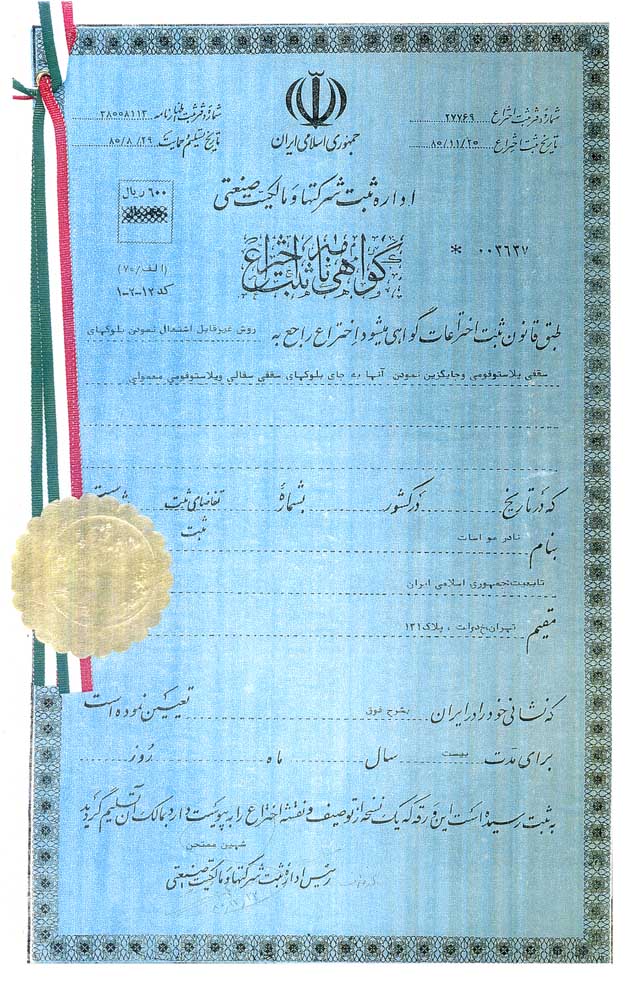 شماره دفتر ثبت اختراع ۲۷۷۶۹
تاریخ ثبت اختراع ۸۰/۱۱/۲۵
جمهوری اسلامی ایران
شماره دفتر ثبت اظهارنامه ۳۸۰۰۸۱۱۳
تاریخ تسلیم و حمایت ۸۰/۸/۲۹
اداره ثبت شرکتها و مالکیت صنعتی
۶۰۰ ریال
* ۰۰۳۶۳۷
گواهی نامه ثبت اختراع
(الف/۷۰)
کد ۱۲-۲-۱
طبق قانون ثبت اختراعات گواهی میشود اختراع راجع به روش غیرقابل اشتعال نمودن بلوکهای
سقفی پلاستوفومی وجایگزین نمودن آنها به جای بلوکهای سقفی سفالی ویلاستوفومی معمولی
که در تاریخ در کشور بشماره تقاضای ثبت
ثبت
بنام نادر مواسات
تابعیت جمهوری اسلامی ایران
مقیم تهران خ دولت ، پلاک ۱۳۱
که نشانی خود را در ایران بشرح فوق تعیین نموده است
برای مدت بیست سال ماه روز
به ثبت رسیده است این ورقه که یک نسخه از توصیف و نقشه اختراع را به پیوست دارد بمالک آن تسلیم گردید
شهین ممتحن
رئیس اداره ثبت شرکتها و مالکیت صنعتی